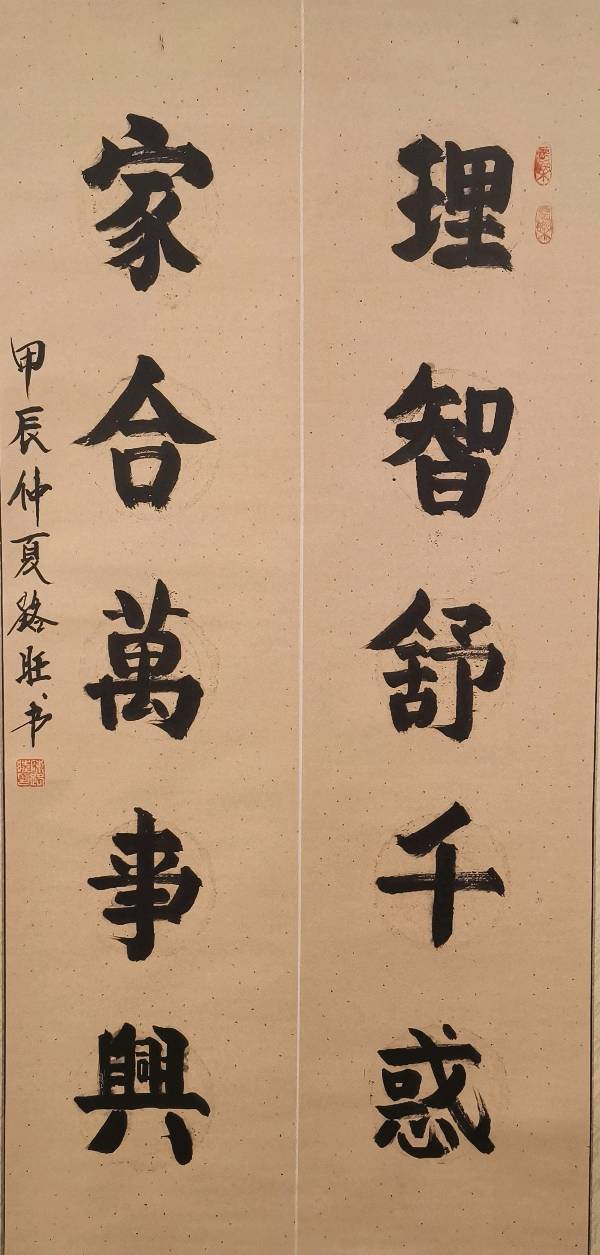 理智舒千惑
家合萬事興
甲辰仲夏 旺书